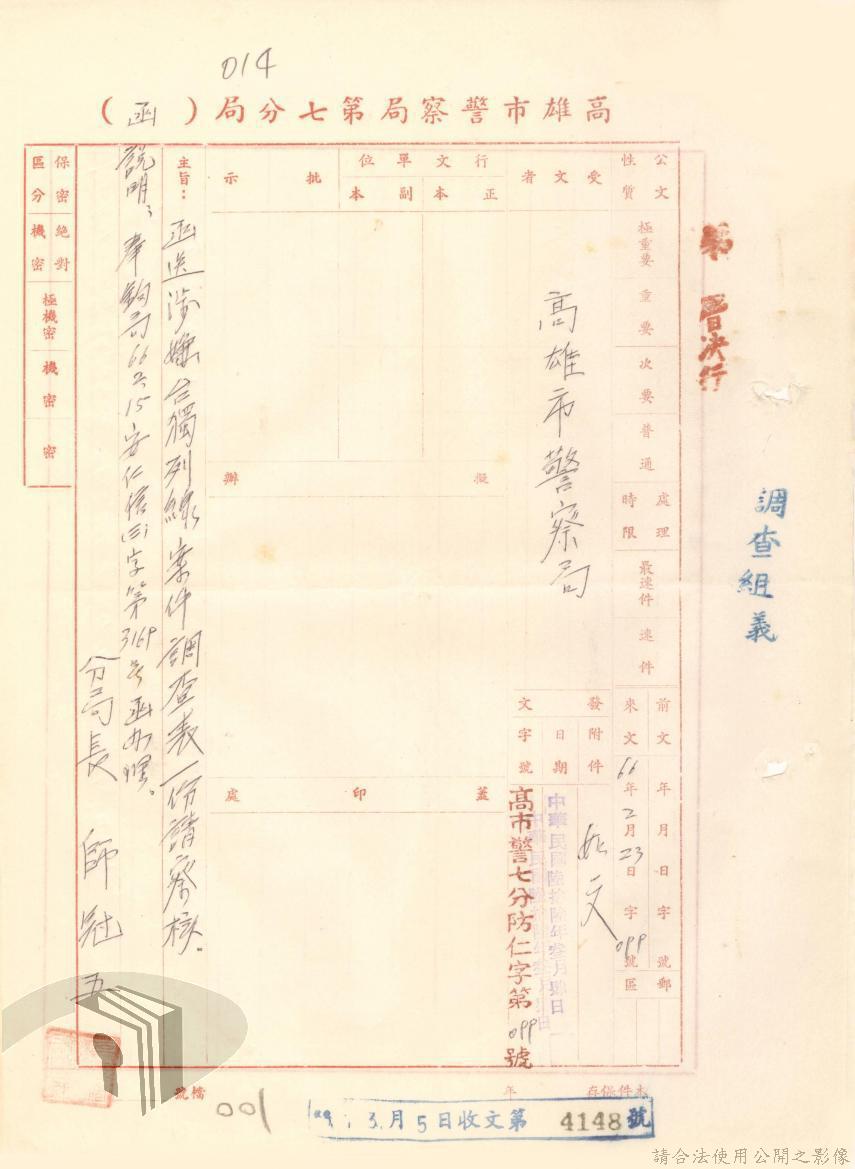 014
高雄市警察局第七分局（函）
公文性質
極重要
重要
次要
普通
處理時限
最速件
速件
前文
年月日字號
來文
66年2月23日字099號
郵區
受文者
高雄市警察局
發文
附件
如文
日期
中華民國陸拾陸年叁月肆日
字號
高市警七分防仁字第099號
行文單位
正本
副本
批示
擬辦
蓋印處
主旨：函送涉嫌台獨列線案件調查表一份請察核。
說明、奉鈞局66 2 15安仁信(三)字第3169號函辦理。
分局長 師冠五
保密區分
絕對機密
極機密
機密
密
第 層決行
調查組義
本件保存 年
檔號
001
3月5日收文第 4148 號
請合法使用公開之影像